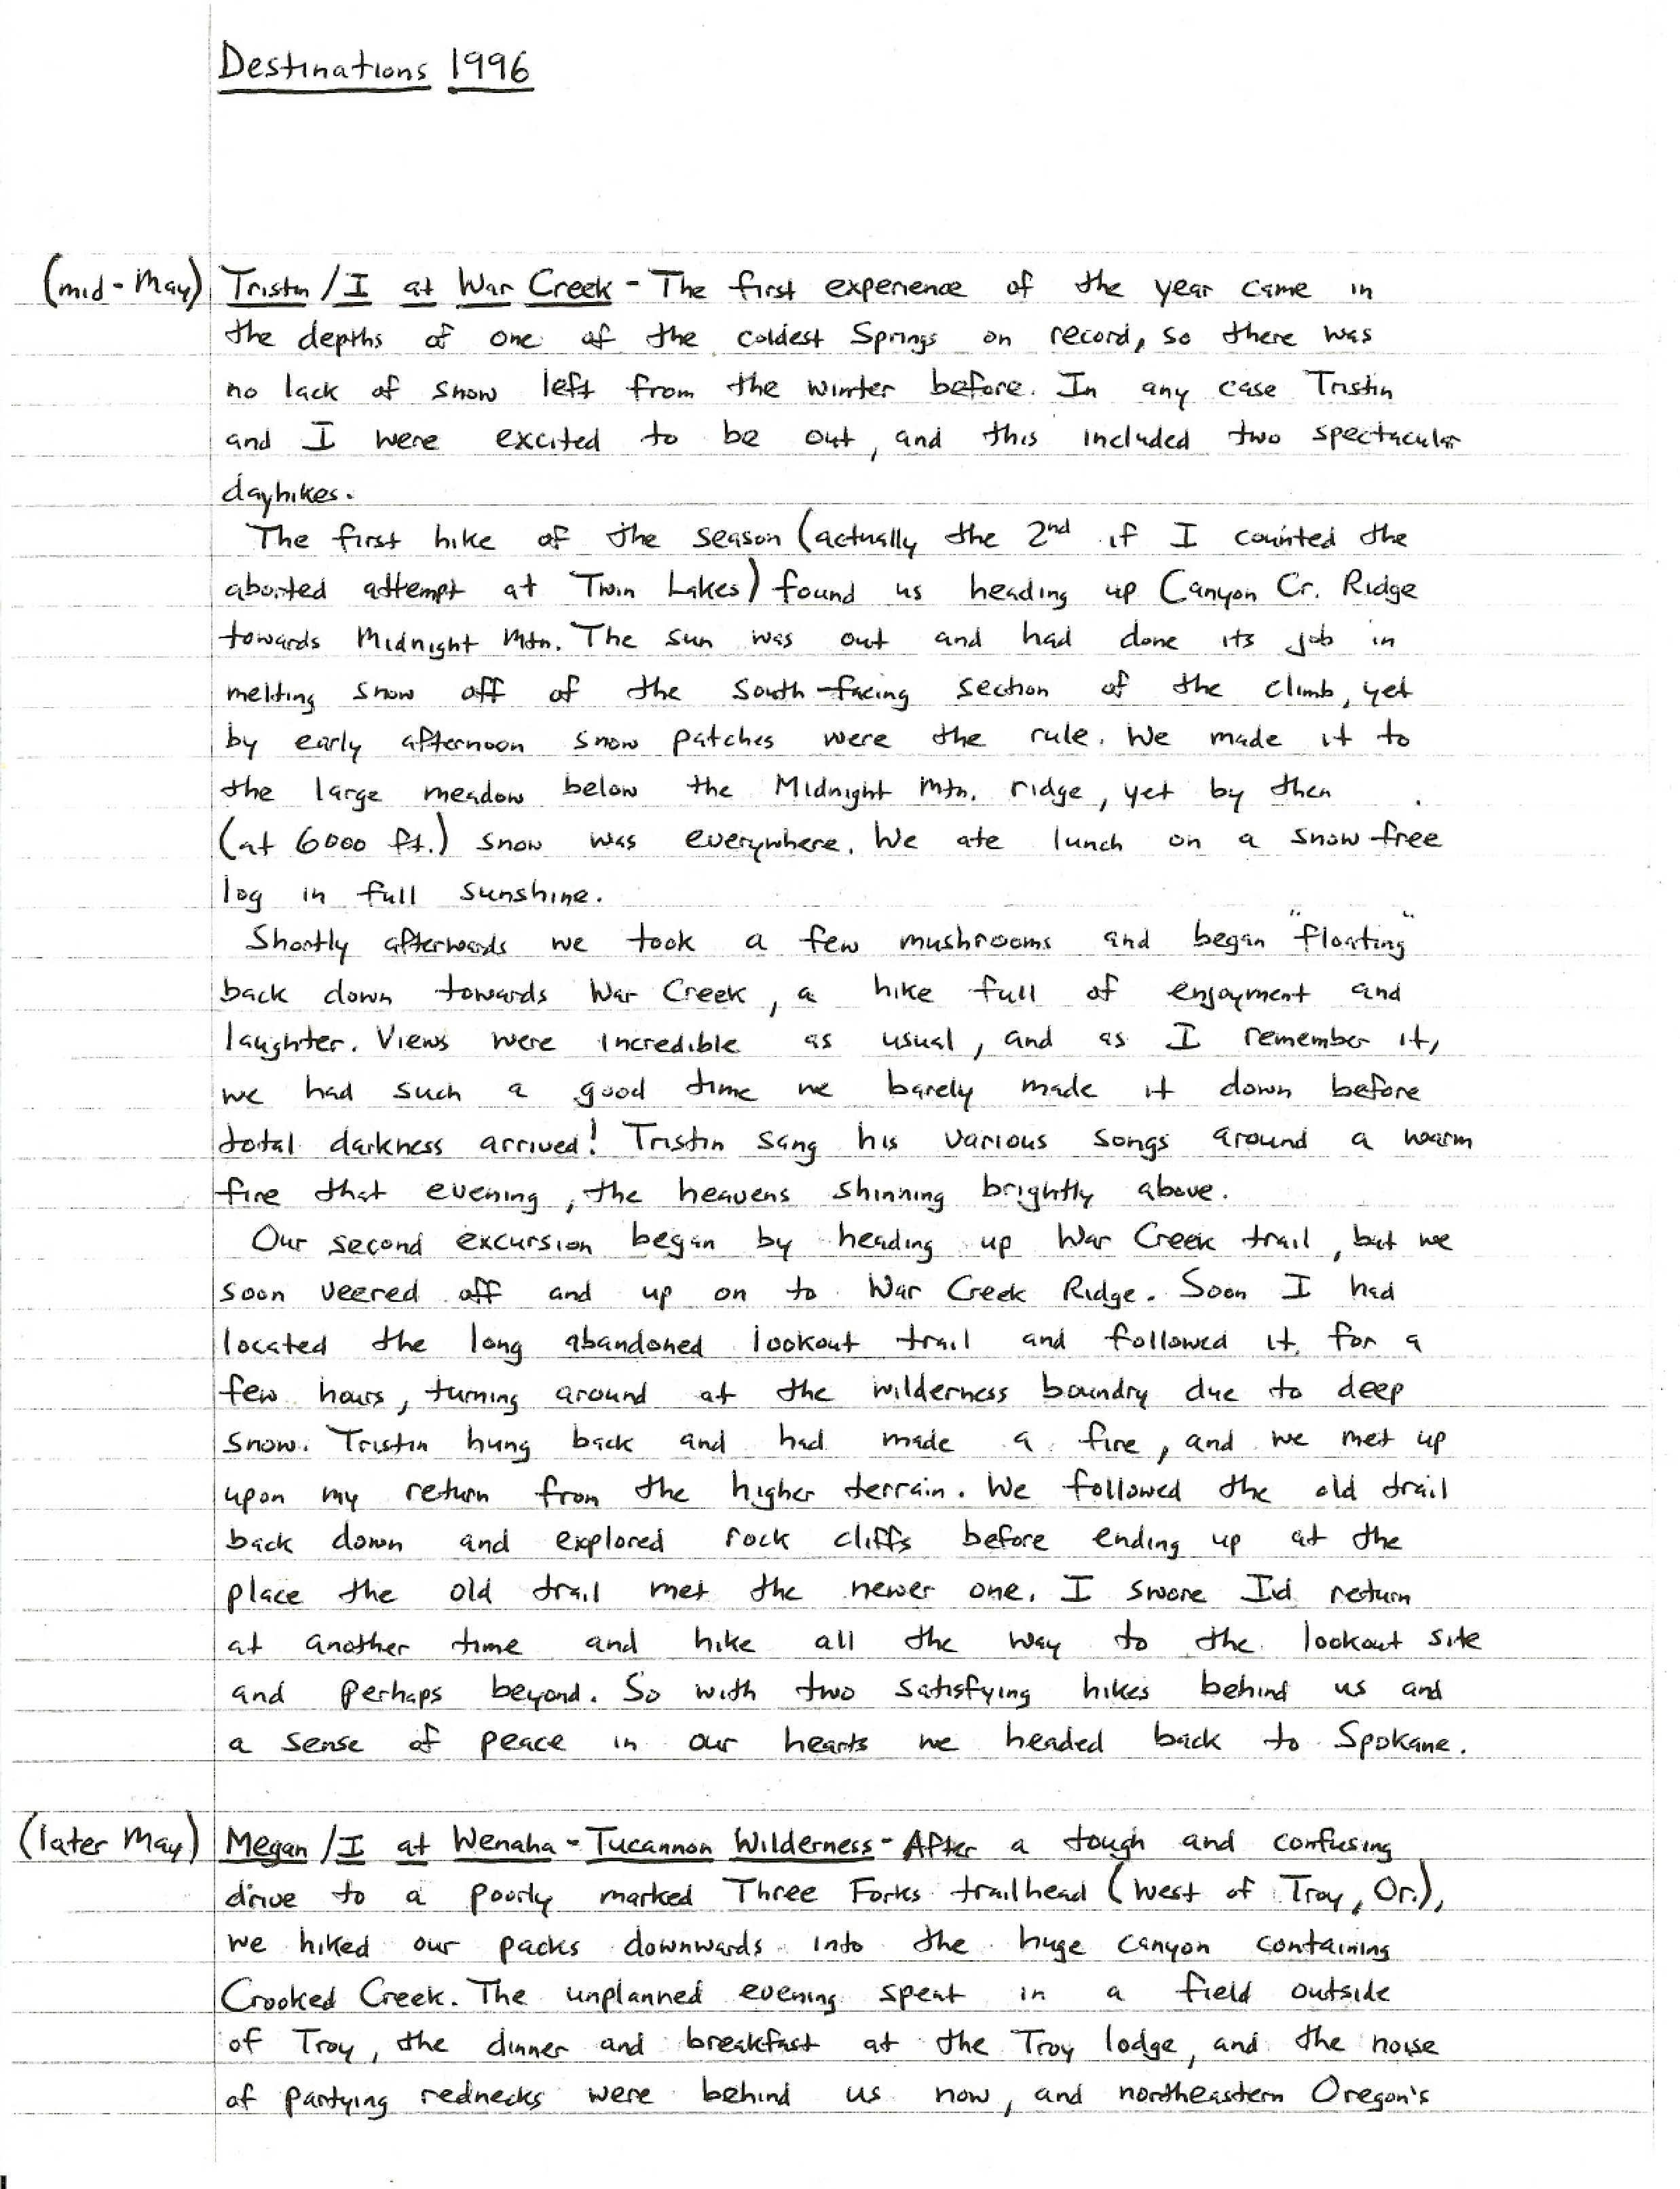 Destinations 1996
(mid-May) Tristin/I at War Creek - The first experience of the year came in
the depths of one of the coldest Springs on record, so there was
no lack of snow left from the winter before. In any case Tristin
and I were excited to be out, and this included two spectacular
dayhikes.
The first hike of the season (actually the 2nd if I counted the
aborted attempt at Twin Lakes) found us heading up Canyon Cr. Ridge
towards Midnight Mtn. The sun was out and had done its job in
melting snow off of the South-facing section of the climb, yet
by early afternoon snow patches were the rule. We made it to
the large meadow below the Midnight Mtn. ridge, yet by then
(at 6000 ft.) snow was everywhere. We ate lunch on a snow-free
log in full sunshine.
Shortly afterwards we took a few mushrooms and began "floating"
back down towards War Creek, a hike full of enjoyment and
laughter. Views were incredible as usual, and as I remember it,
we had such a good time we barely made it down before
total darkness arrived! Tristin sang his various songs around a warm
fire that evening, the heavens shinning brightly above.
Our second excursion began by heading up War Creek trail, but we
soon veered off and up on to War Creek Ridge. Soon I had
located the long abandoned lookout trail and followed it for a
few hours, turning around at the wilderness boundry due to deep
snow. Tristin hung back and had made a fire, and we met up
upon my return from the higher terrain. We followed the old trail
back down and explored rock cliffs before ending up at the
place the old trail met the newer one. I swore I'd return
at another time and hike all the way to the lookout site
and perhaps beyond. So with two satisfying hikes behind us and
a sense of peace in our hearts we headed back to Spokane.
(later May) Megan/I at Wenaha-Tucannon Wilderness - After a tough and confusing
drive to a poorly marked Three Forks trailhead (west of Troy, Or.),
we hiked our packs downwards into the huge canyon containing
Crooked Creek. The unplanned evening spent in a field outside
of Troy, the dinner and breakfast at the Troy lodge, and the noise
of partying rednecks were behind us now, and northeastern Oregon's